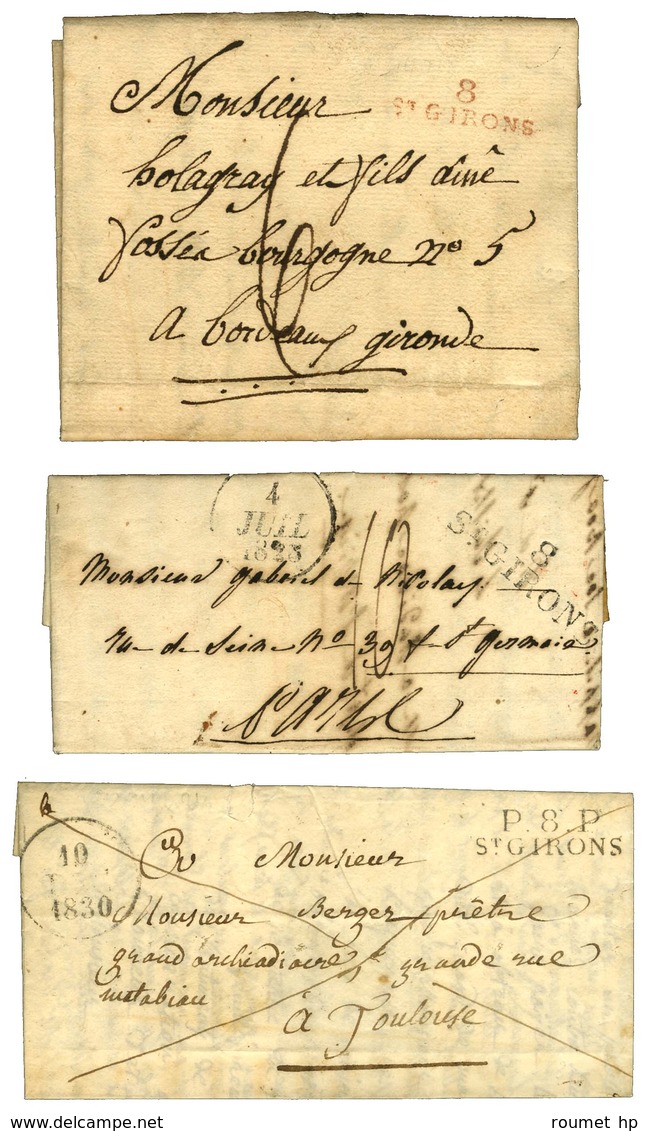 8
St GIRONS
Monsieur
bolagray et fils ainé
fossés bourgogne no 5
a bordeaux gironde
4
JUIL
1828
8
St GIRONS
Monsieur gabriel de Nicolay
rue de Seine No 39 f. St germain
PARIS
10
1830
P. 8. P
ST GIRONS
Monsieur
Monsieur Berger prêtre
grand archidiacre grande rue
matabiau
à Toulouse
roumet hp